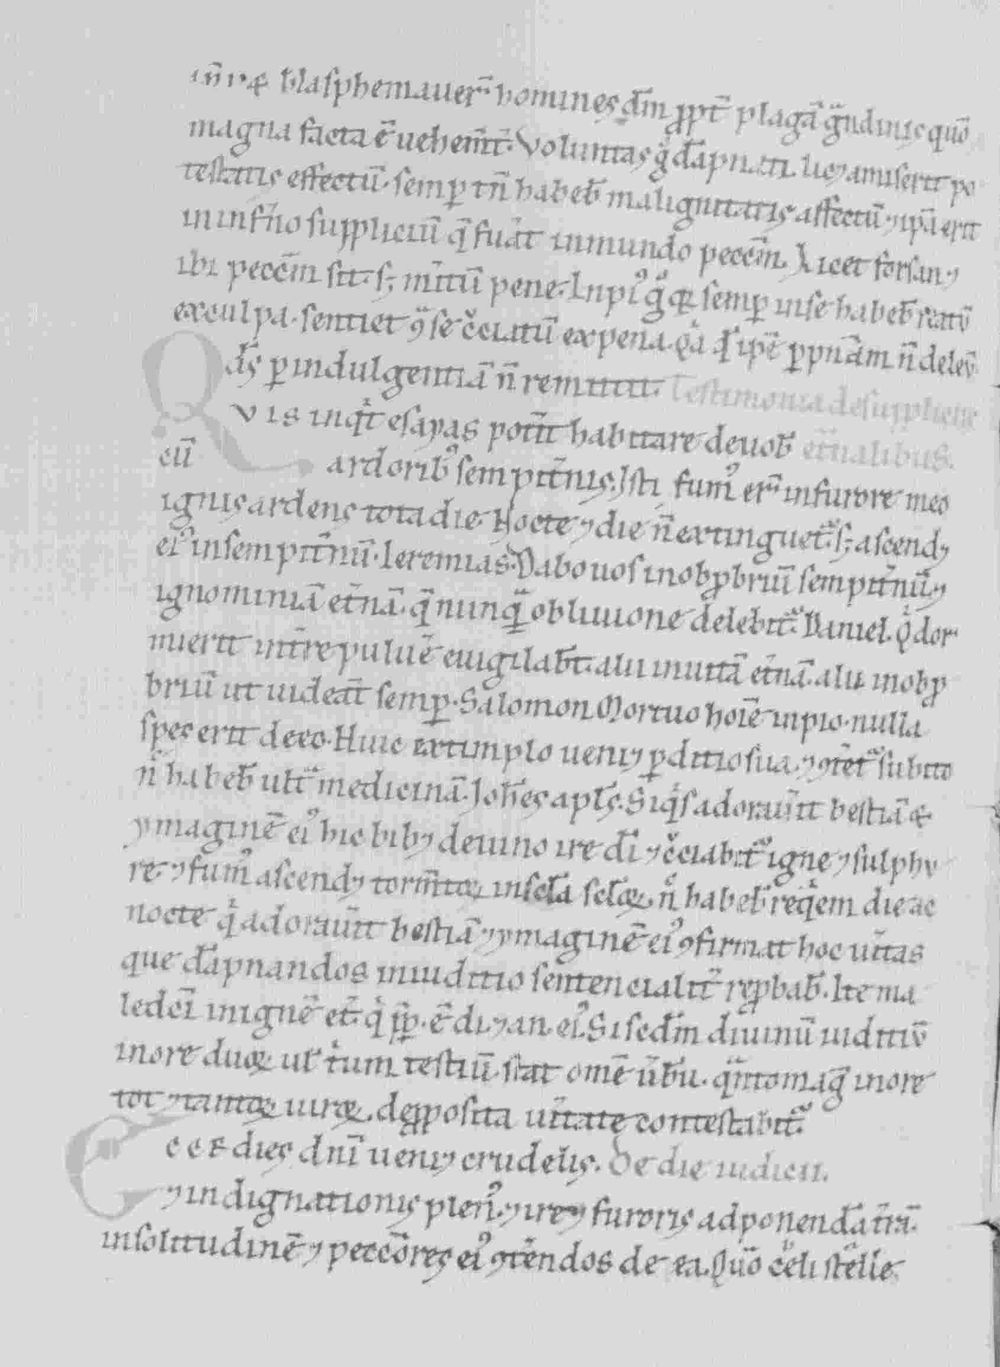 blasphemauer̄ homines dm̄ ꝓpt̄ plagā g̃ndinis quō
magna facta ē uehem̄t̄. Voluntas g̊ dāpnati. licꝫ amiserit po
testatis effectū. semꝑ tn̄ habeb̄ malignitatis affectū ⁊ ip̄a erit
in inf̄no suppliciū q̄ fuāt in mundo peccm̄. Licet forsan ⁊
ibi peccm̄ sit. sꝫ m̄itū pene. Inpiꝰ g̊ qꝫ semꝑ in se habeb̄ reatū
ex culpa. sentiet ꝯse c̄ciatū ex pena. q̄a qd̓ ipē ꝑ pnīam n̄ deleū.
ds̄ ꝑ indulgentiā n̄ remittit. Testimonia de suppliciis
Vis inqͥt esayas pot̄it habitare de uob̄ et̄nalibus.
cū ardoribꝰ sempit̄nis. Isti fumꝰ er̄ in furore meo
ignis ardens tota die. Nocte ⁊ die n̄ extinguet̄. sꝫ ascendꝫ
eiꝰ in sempit̄nū. Ieremias. Dabo uos in obꝓbriū sempit̄nū ⁊
ignominiā et̄nā. q̄ nunqͣ obliuione delebit̄. Daniel. Qͥ dor
mierit in t̄re puluē euigilab̄t. alii in uitā et̄nā. alii in obꝓ
briū ut uideāt semꝑ. Salomon. Mortuo hoīe inpio. nulla
spes erit de eo. Huic extimplo ueniꝫ ꝑditio sua. ⁊ ꝯt̄et̄ subito
n̄ habeb̄ ult̄ medicinā. Joh̄es apl̄s. Si qͥs adorauit bestiā ⁊
ymaginē eiꝰ hic bibꝫ de uino ire di̅ ⁊ c̄ciabit̄ igne ⁊ sulphu
re. ⁊ fumꝰ ascendꝫ tormtoꝝ in scl̄a scl̄oꝝ. n̄ habeb̄ reqͥem die ac
nocte qͥ adorauit bestiā ⁊ ymaginē eiꝰ ꝯfirmat hoc ūitas
que dāpnandos in iuditio sentencialit̄ reꝓbab̄. Ite ma
ledcī in ignē et̄. qͥ p̄ꝑ. ē di. ⁊ an. eiꝰ. Si scdm̄ diuinū iuditiū
in ore duoꝝ uł tͥum testiū. stat om̄e ūbū. qͣntomag̃ in ore
tot ⁊ tantoꝝ uiroꝝ. de ꝓposita ūitate contestabit̄.
Ecce dies dnī ueniꝫ crudelis. De die iudicii.
⁊ indignationis plenꝰ. ⁊ ire ⁊ furoris ad ponendā t̄rā.
in solitudinē ⁊ peccōres eiꝰ ꝯt̄endos de ea. Quō celi stelle